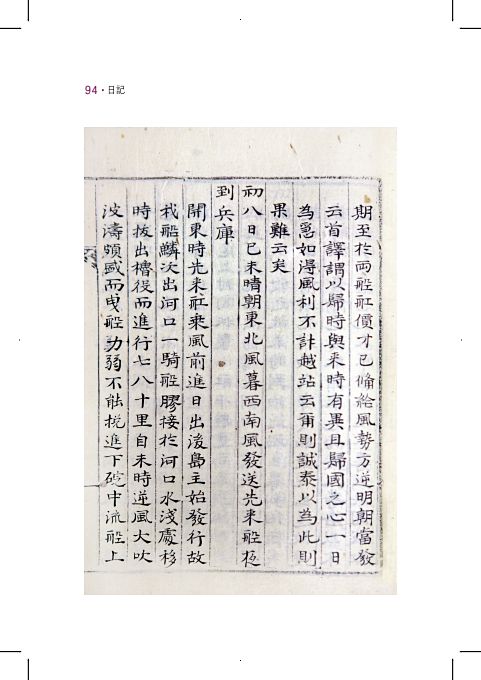 94 • 日記
期至於両船舡價才已備給風勢方逆明朝當發
云首譯謂以歸時與来時有異且歸國之心一日
為急如得風利不計越站云爾則誠泰以為此則
果難云矣
初八日己未晴朝東北風暮西南風發送先来船夜
到兵庫
開東時先来舡乗風前進日出後島主始發行故
我船鱗次出河口一騎船膠接於河口水淺處移
時拔出櫓役而進行七八十里自未時逆風大吹
波濤頗盛而曳船力弱不能挽進下碇中流船上